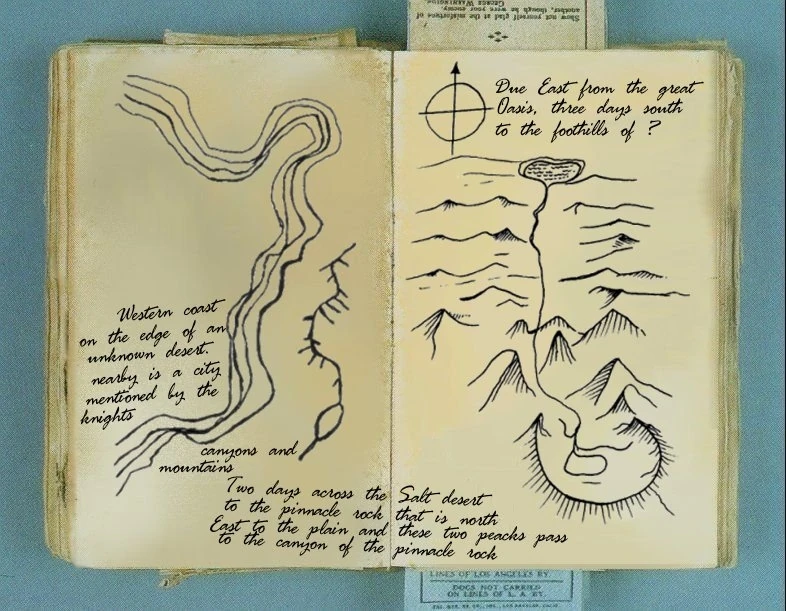 Show not yourself glad at the misfortune of
another, though he were your enemy.
GEORGE WASHINGTON
Western coast
on the edge of an
unknown desert.
nearby is a city
mentioned by the
knights
canyons and
mountains
Due East from the great
Oasis, three days south
to the foothills of ?
Two days across the Salt desert
to the pinnacle rock that is north
East to the plain and these two peacks pass
to the canyon of the pinnacle rock
LINES OF LOS ANGELES RY.
DOGS NOT CARRIED
ON LINES OF L. A. RY.